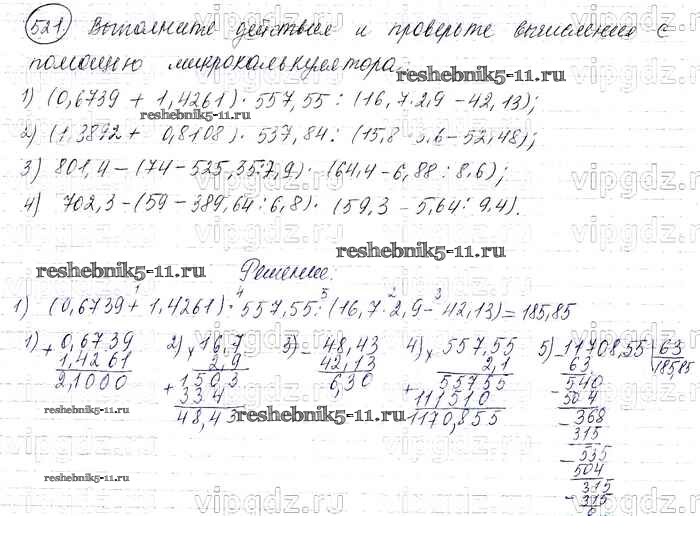 521. Выполните действия и проверьте вычисления с
помощью микрокалькулятора:
reshebnik5-11.ru
1) (0,6739 + 1,4261) · 557,55 : (16,7 · 2,9 - 42,13);
reshebnik5-11.ru
2) (1,3892 + 0,8108) · 537,84 : (15,8 · 3,6 - 52,48);
3) 801,4 - (74 - 525,35:7,9) · (64,4 - 6,88 : 8,6);
4) 702,3 - (59 - 389,64 : 6,8) · (59,3 - 5,64 : 9,4).
reshebnik5-11.ru
reshebnik5-11.ru
Решение:
1) (0,6739 + 1,4261) · 557,55 : (16,7 · 2,9 - 42,13) = 185,85
1) + 0,6739 2) × 16,7 3) - 48,43 4) × 557,55 5) - 11708,55 63
1,4261 2,9 42,13 2,1 63 185,85
2,1000 + 1503 6,30 + 55755 - 540
334 111510 504
48,43 1170,855 - 368
reshebnik5-11.ru
reshebnik5-11.ru
315
- 535
504
reshebnik5-11.ru
reshebnik5-11.ru
315
- 315
0
vipgdz.ru